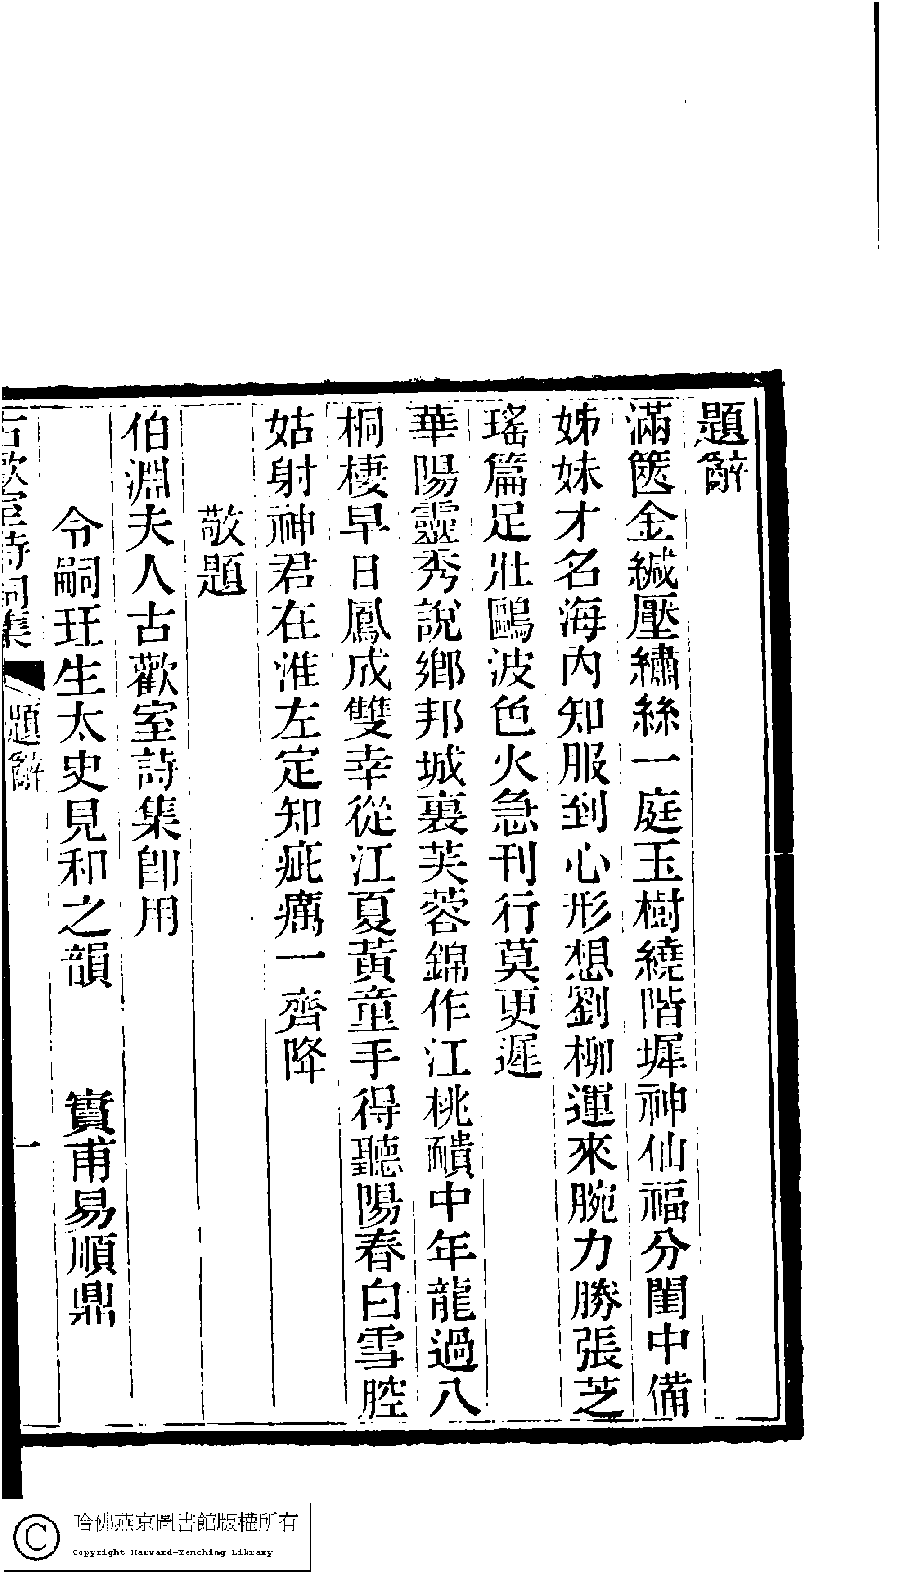 題辭
滿篋金緘壓繡絲一庭玉樹繞階墀神仙福分閨中備
姊妹才名海內知服到心形想劉柳運來腕力勝張芝
瑤篇足壯鷗波色火急刊行莫更遲
華陽靈秀說鄉邦城裏芙蓉錦作江桃磧中年龍過八
桐棲早日鳳成雙幸從江夏黃童手得聽陽春白雪腔
姑射神君在淮左定知疵癘一齊降
敬題
伯淵夫人古歡室詩集即用
令嗣玨生太史見和之韻 實甫易順鼎
古歡室詩詞集 題辭 一
哈佛燕京圖書館版權所有
Copyright Harvard-Yenching Library